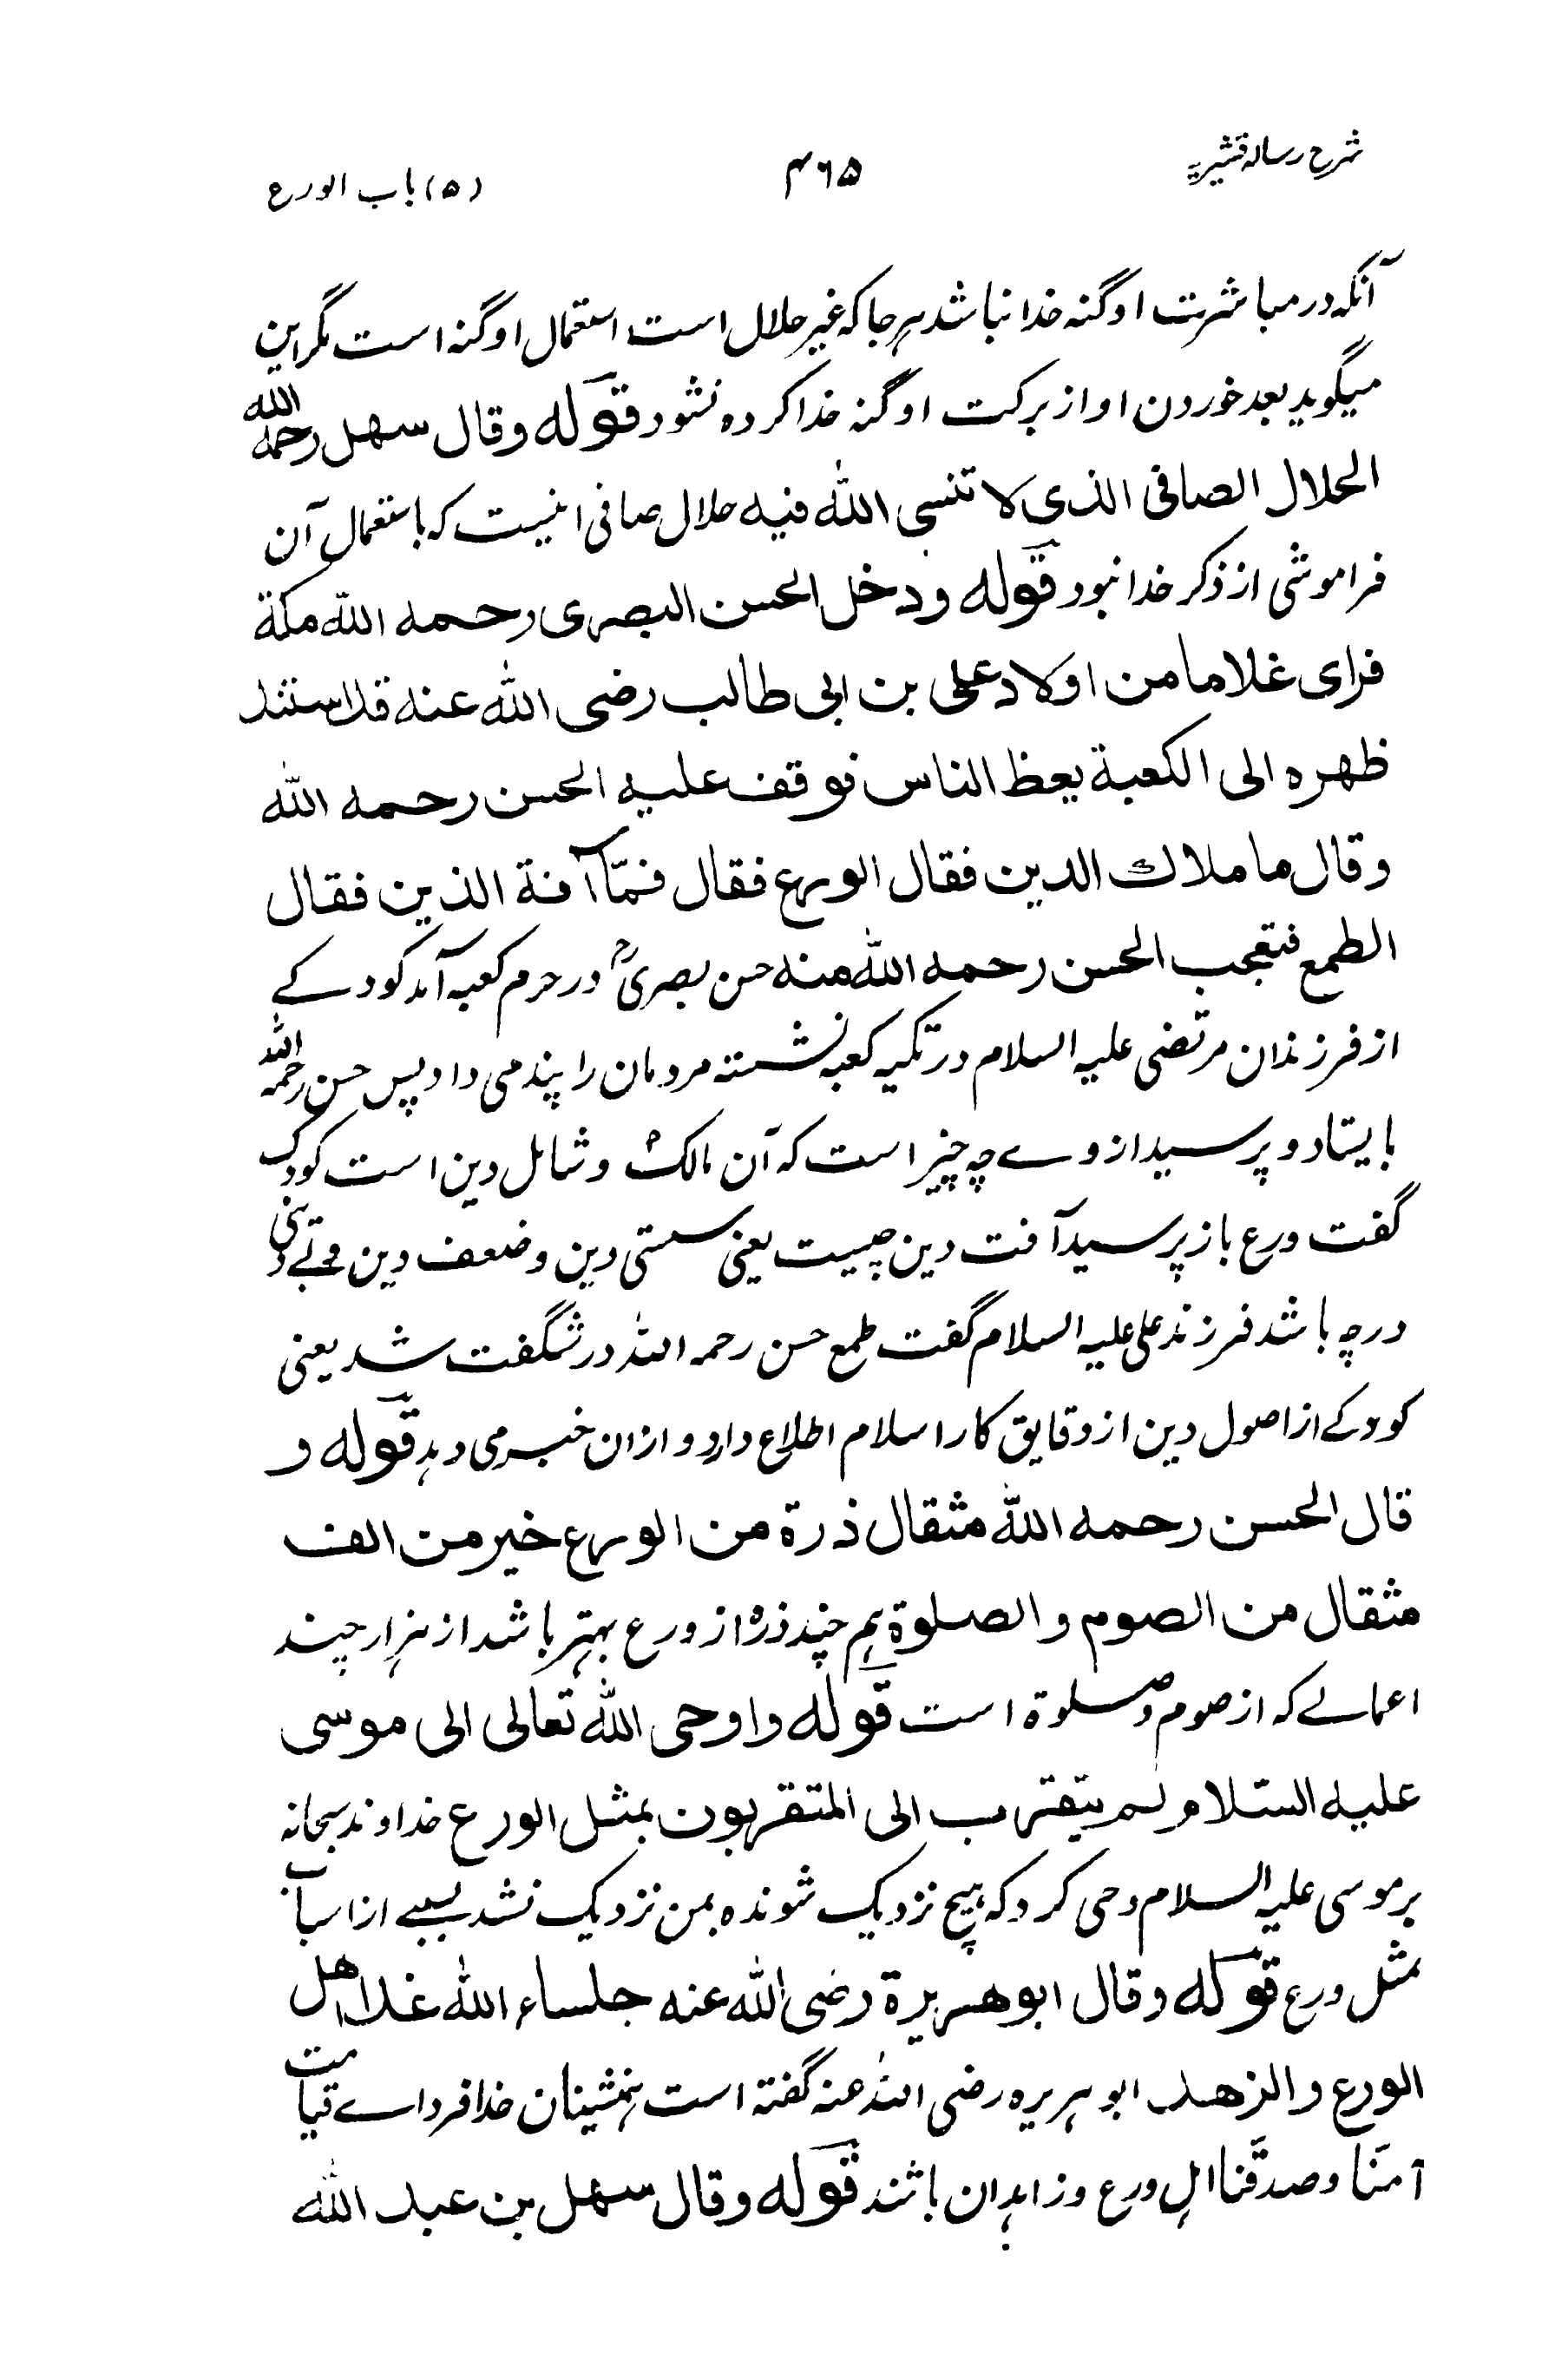 شرح رساله قشیریه
۴۶۵
(۵) باب الورع
آنکه در مباشرت او گنه خدا نباشد هر جا که غیر حلال است استعمال او گنه است مگر این
میگوید بعد خوردن او از برکت او گنه خدا کرده نشود قوله وقال سهل رحمه الله
الحلال الصافی الذی لا تنسی الله فیه حلال صافی اینست که باستعمال آن
فراموشی از ذکر خدا نبود قوله ودخل الحسن البصری رحمه الله مکة
فرای غلاما من اولاد علی بن ابی طالب رضی الله عنه قد استند
ظهره الی الکعبة یعظ الناس فوقف علیه الحسن رحمه الله
وقال ما ملاك الدین فقال الورع فقال فما آفة الذین فقال
الطمع فتعجب الحسن رحمه الله منه حسن بصریؒ در حرم کعبه آمد کودکے
از فرزندان مرتضی علیه السلام در تکیه کعبه نشسته مردمان را پند می داد پس حسن رحمه الله
بایستاد و پرسید از وے چه چیز است که آن مالک و شامل دین است کودک
گفت ورع باز پرسید آفت دین چیست یعنی سستی دین و ضعف دین
در چه باشد فرزند علی علیه السلام گفت طمع حسن رحمه الله در شگفت شد یعنی
کودکے از اصول دین از دقایق کار اسلام اطلاع دارد و ازان خبر می دهد قوله و
قال الحسن رحمه الله مثقال ذرة من الورع خیر من الف
مثقال من الصوم والصلوة هم چند ذره از ورع بهتر باشد از هزار چند
اعمالے که از صوم و صلوة است قوله واوحی الله تعالی الی موسی
علیه السّلام لم یتقرب الی المتقربون بمثل الورع خداوند سبحانه
بر موسی علیه السلام وحی کرد که هیچ نزدیک شونده بمن نزدیک نشد بسببے از اسباب
مثل ورع قوله وقال ابو هریرة رضی الله عنه جلساء الله غدا اهل
الورع والزهد ابو هریره رضی الله عنه گفته است همنشینان خدا فرداے قیامت
آمنّا وصدقنا اهل ورع وزاهدان باشند قوله وقال سهل بن عبد الله